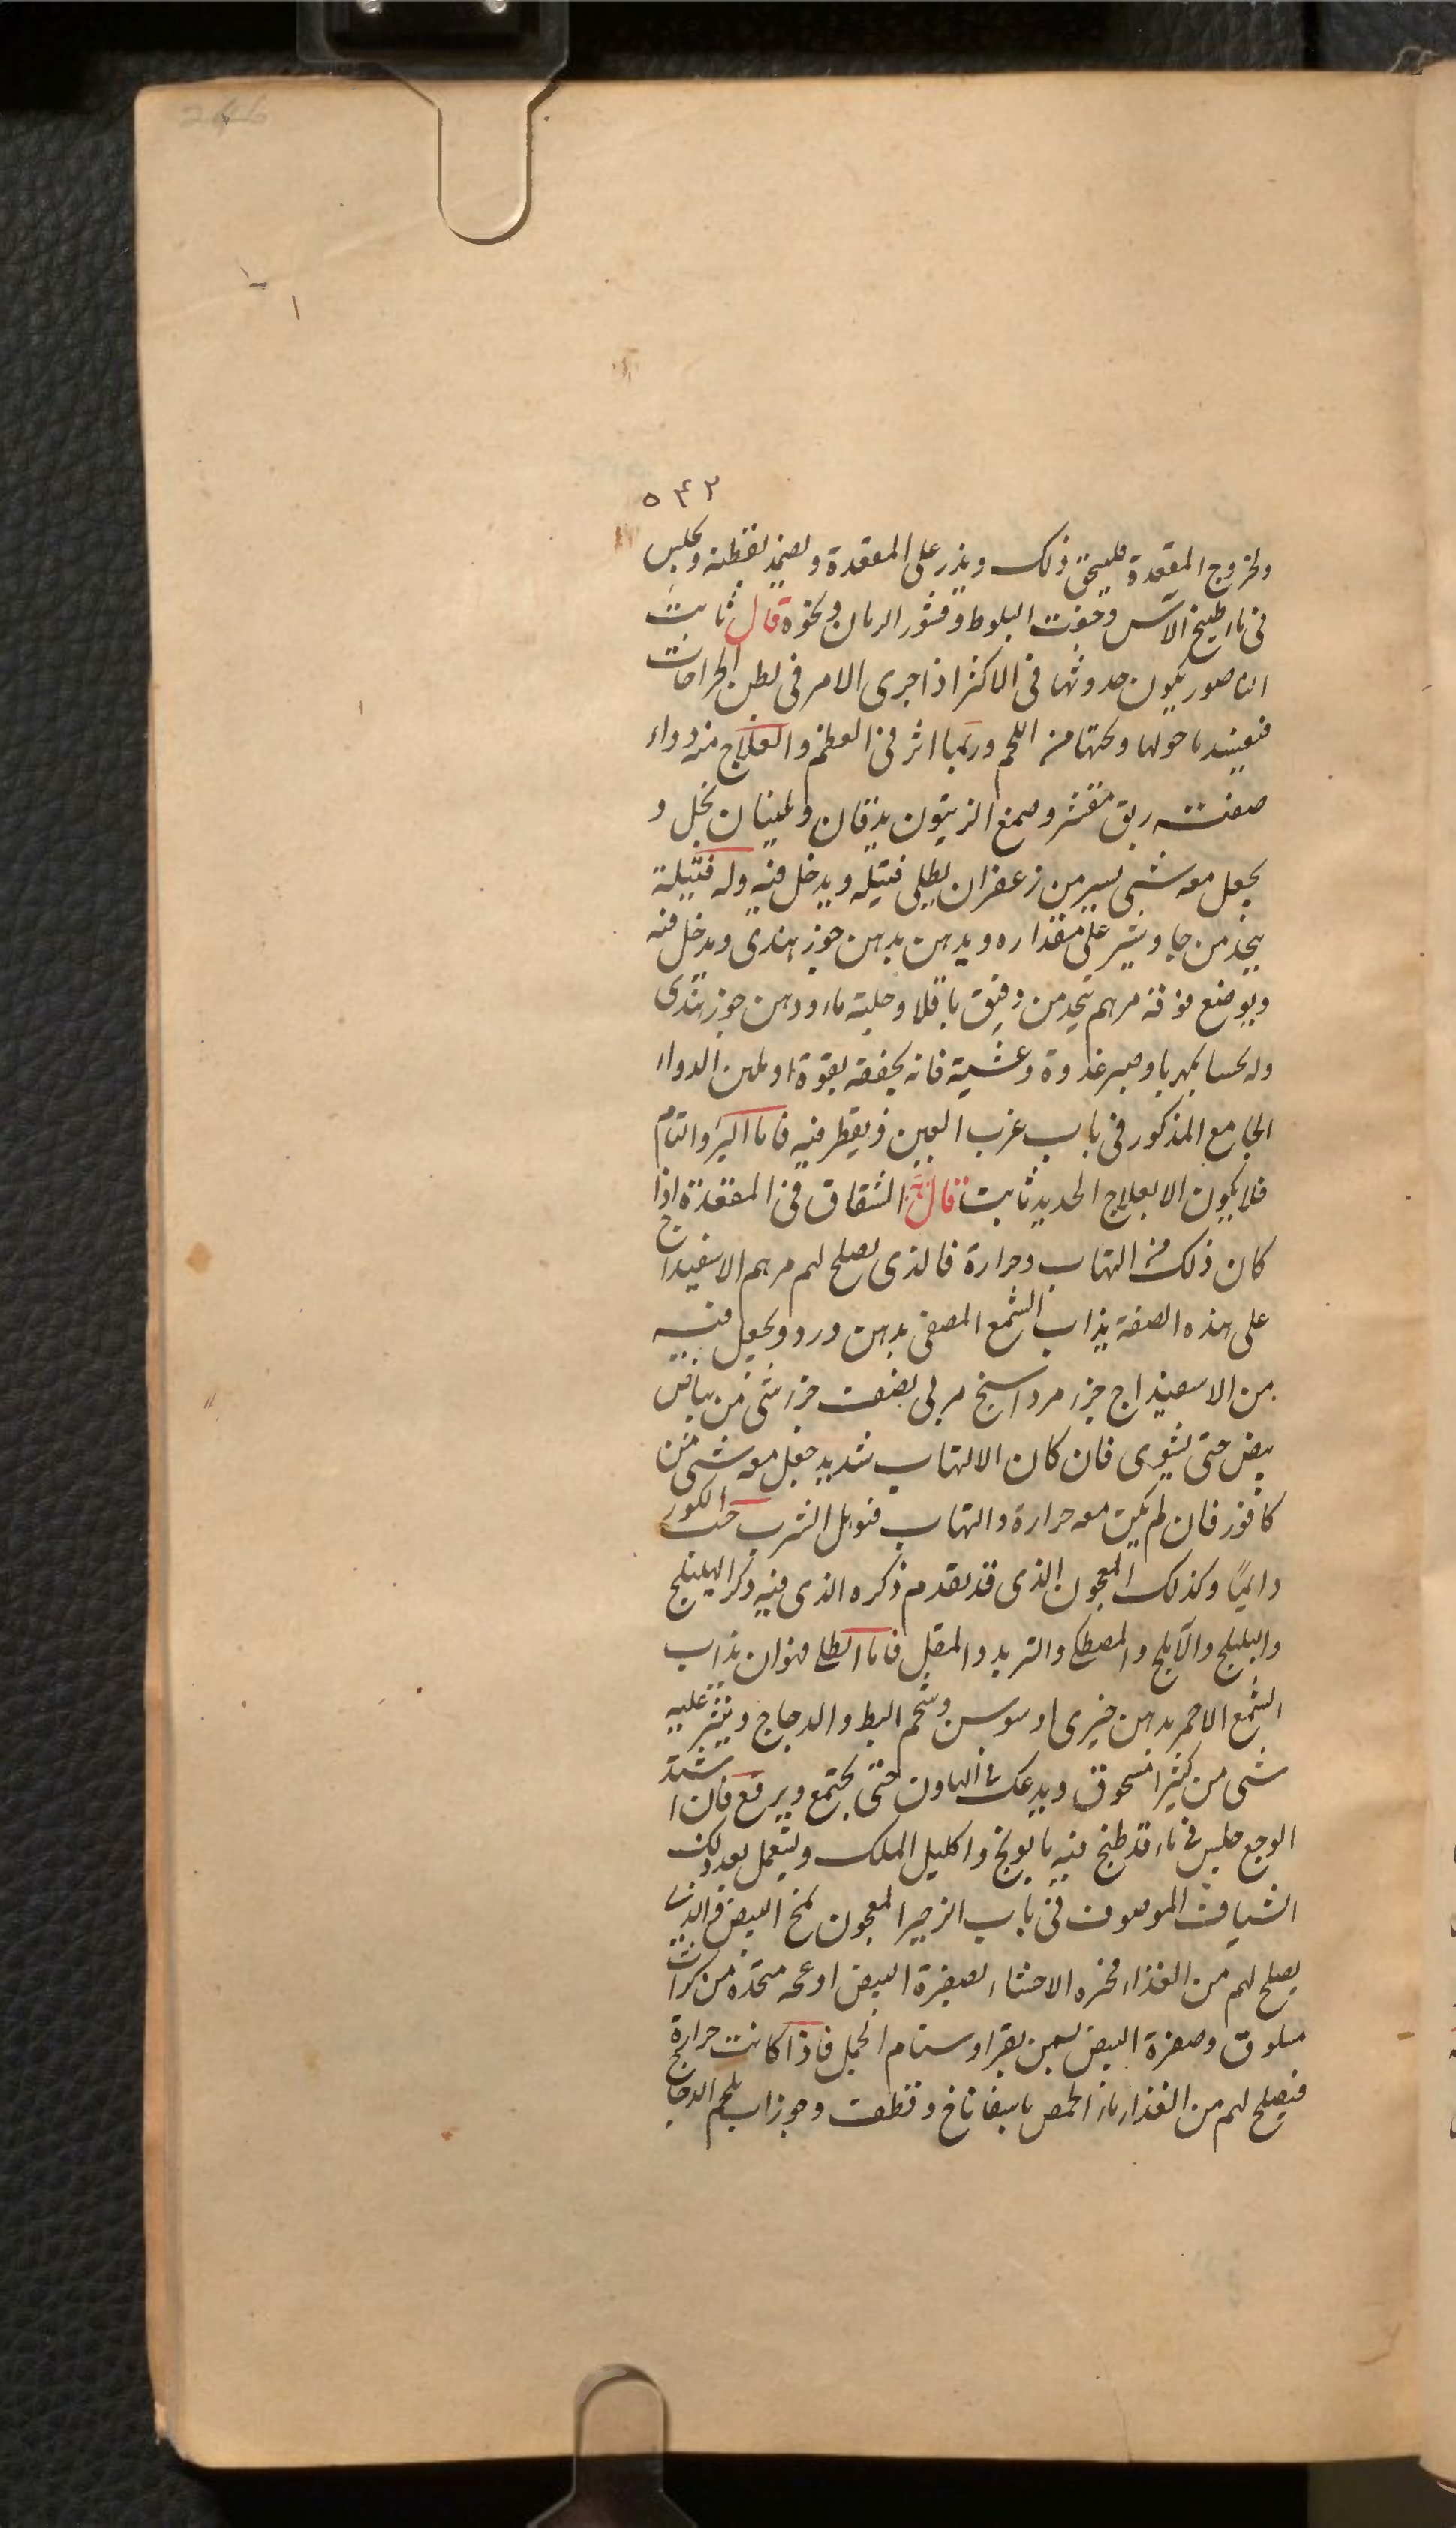 ٥٤٣
ولخروج المقعدة فليسحق ذلك ويذر على المعقدة ويضمد بقطنه ويجلس
فى ماء طبيخ الآس وجفت البلوط وقشور الرمان ونحوه قال ثابت
الناصور يكون حدوثها فى الاكثر اذا جرى الامر فى بطن الجراحات
فيفسد ما حولها وتحتها من اللحم وربما اثر فى العظم والعلاج منه دواء
صفته ريق مقشر وصمغ الزيتون يدقان ويلينان بخل و
يجعل معه شئ يسير من زعفران يطلى فتيله ويدخل فيه وله فتيلة
يتخذ من جاوشير على مقداره ويدهن بدهن جوز هندى ويدخل فيه
ويوضع فوقه مرهم يتخذ من دقيق باقلا وحلبة ماء ودهن جوز هندى
وله بكهربا وصبر غدوة وعشية فانه يجففه بقوة او الدواء
الجامع المذكور فى باب غرب العين فيقطر فيه فاما البرء والتام
فلا يكون الا بعلاج الحديد ثابت قال الشقاق فى المقعدة اذا
كان ذلك من التهاب وحرارة فالذى يصلح لهم مرهم الاسفيداج
على هذه الصفة يذاب الشمع المصفى بدهن ورد ويجعل فيه
من الاسفيذاج جزء مرداسنج مربى نصف جزء شئ من بياض
بيض حتى يستوى فان كان الالتهاب شديد جعل معه شئ من
كافور فان لم يكن معه حرارة والتهاب الشرب حب الكور
دايمًا وكذلك المعجون الذى قد تقدم ذكره الذى فيه ذكر الهليلج
والبليلج والآملج والمصطكى والتربد والمقل فاما الطلى فهو ان يذاب
الشمع الاحمر بدهن خيرى او سوسن وشحم البط والدجاج وينثر عليه
شئ من كثيرا مسحوق ويدعك فى الهاون حتى يجتمع ويرفع فان اشتد
الوجع جلس فى ماء قد طبخ فيه بابونج واكليل الملك ويستعمل بعد ذلك
الشياف الموصوف فى باب الزحير المعجون بمخ البيض والذى
يصلح لهم من الغذاء الاحشاء بصفرة البيض او عجه متخذه من كراث
مسلوق وصفرة البيض بسمن بقر او سنام الجمل فاذا كانت حرارة
فيصلح لهم من الغذاء ماء الحمص باسفاناخ وقطف وجوزاب بلحم الدجاج